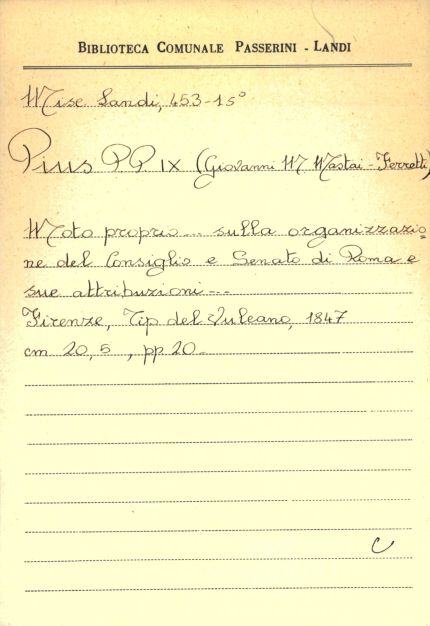 BIBLIOTECA COMUNALE PASSERINI - LANDI
Misc Landi, 453-15°
Pius PP. IX (Giovanni M Mastai - Ferretti)
Moto proprio... sulla organizzazio=
ne del Consiglio e Senato di Roma e
sue attribuzioni...
Firenze, Tip del Vulcano, 1847
cm 20,5 , pp 20
C